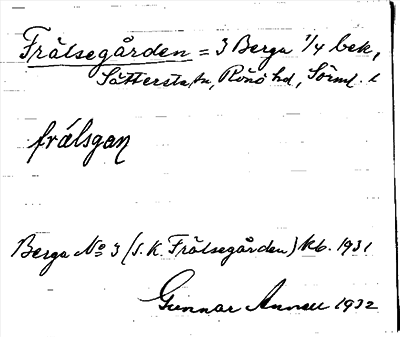 Frälsegården = 3 Berga 1/4 bek,
Sättersta sn, Rönö hd, Sörml. l
frälsgan
Berga No 3 (s.k. Frälsegården) Kb. 1931
Gunnar Annell 1932